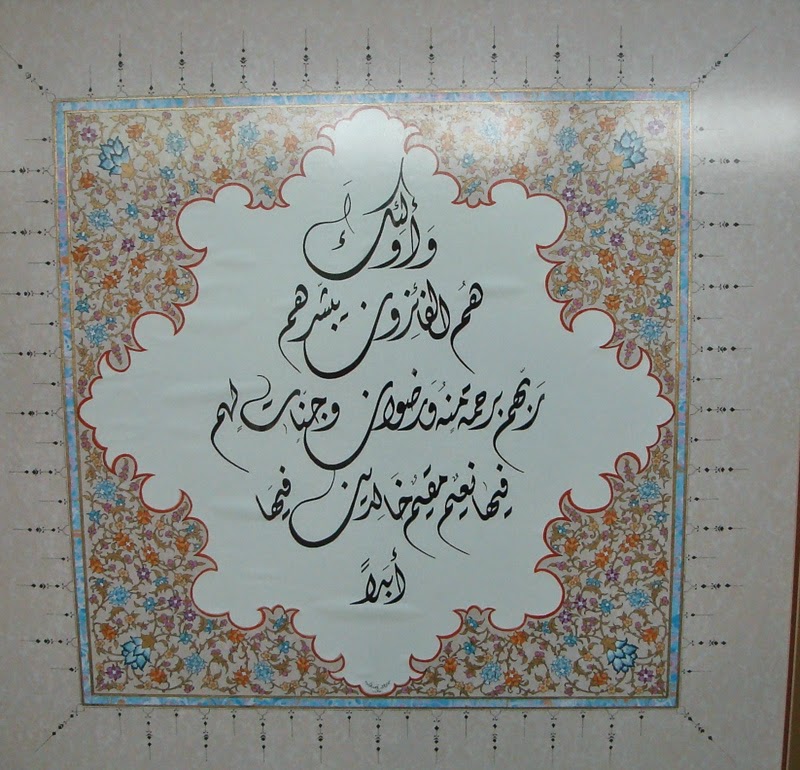 وَأُولَئِكَ
هُمُ الفَائِزون يبشّرهم
رَبّهم برحمة مِنهُ وَرضوان وجنّات لهم
فيها نعِيم مقِيم خَالدين فيهَا
أَبَداً